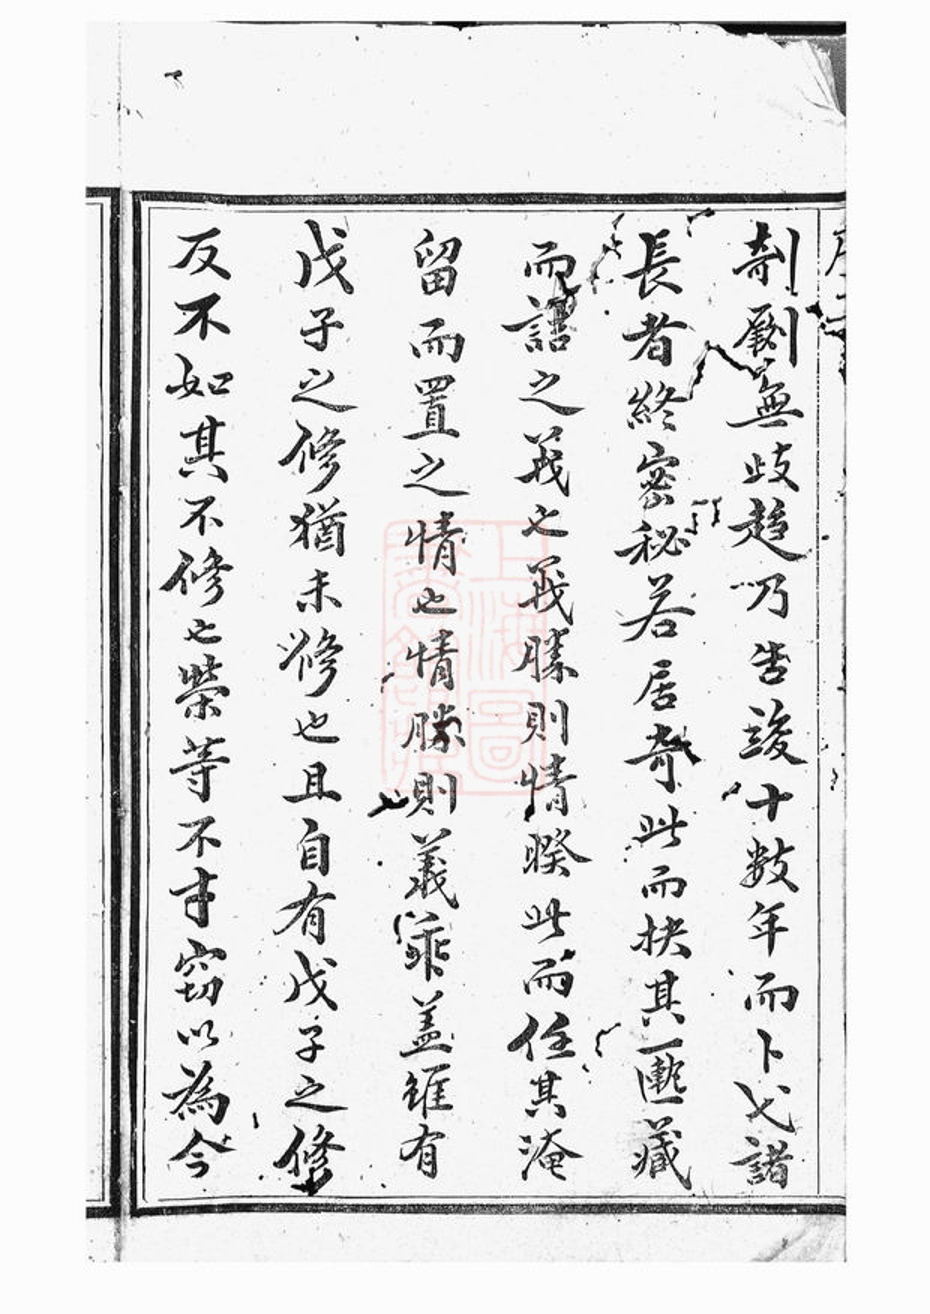 剞劂無歧趨乃告竣十數年而卜弋諸
長者終密秘若居奇此而抉其一匭藏
而語之義也義勝則情睽此而任其淹
留而置之情也情勝則義乖蓋雖有
戊子之修猶未修也且自有戊子之修
反不如其不修也棨等不才竊以為今
上海圖書館藏